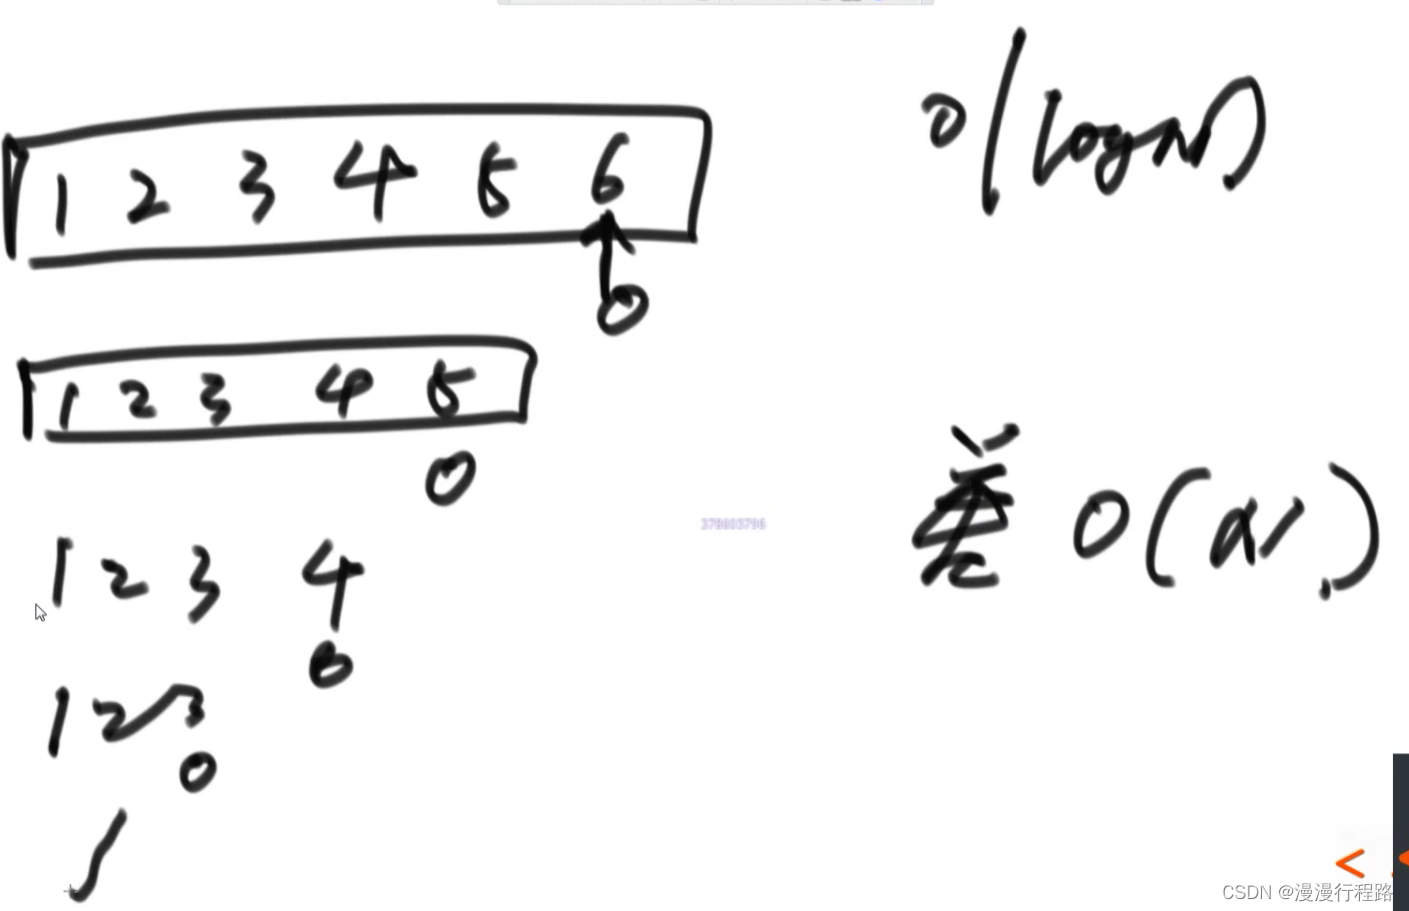 1 2 3 4 5 6
0
1 2 3 4 5
0
1 2 3 4
0
1 2 3
0
O(logN)
差 O(N)
CSDN @漫漫行程路